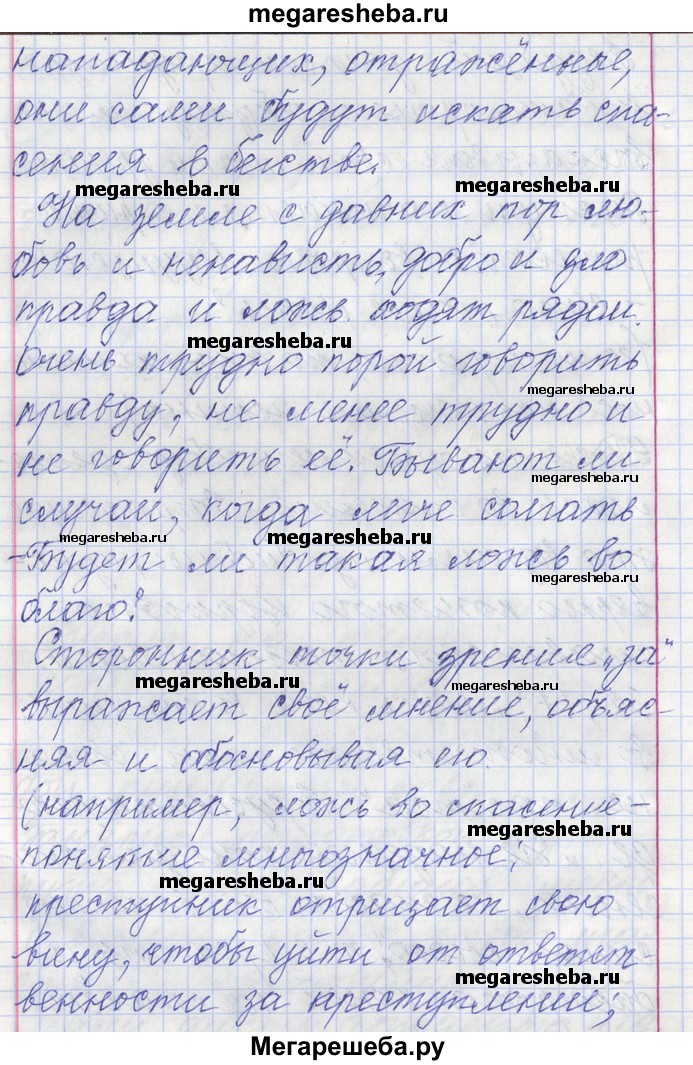 megaresheba.ru
нападающих, отражённые,
они сами будут искать спа-
сения в бегстве.
megaresheba.ru
megaresheba.ru
На земле с давних пор лю-
бовь и ненависть, добро и зло
правда и ложь ходят рядом.
megaresheba.ru
Очень трудно порой говорить
megaresheba.ru
правду, не менее трудно и
не говорить её. Бывают ли
megaresheba.ru
случаи, когда легче солгать
megaresheba.ru
megaresheba.ru
-Будет ли такая ложь во
megaresheba.ru
благо?
Сторонник точки зрения „за"
megaresheba.ru
megaresheba.ru
выражает своё мнение, объяс-
няя и обосновывая его.
(например, ложь во спасение-
megaresheba.ru
понятие многозначное;
megaresheba.ru
преступник отрицает свою
вину, чтобы уйти от ответст-
megaresheba.ru
венности за преступление;
Мегарешеба.ру